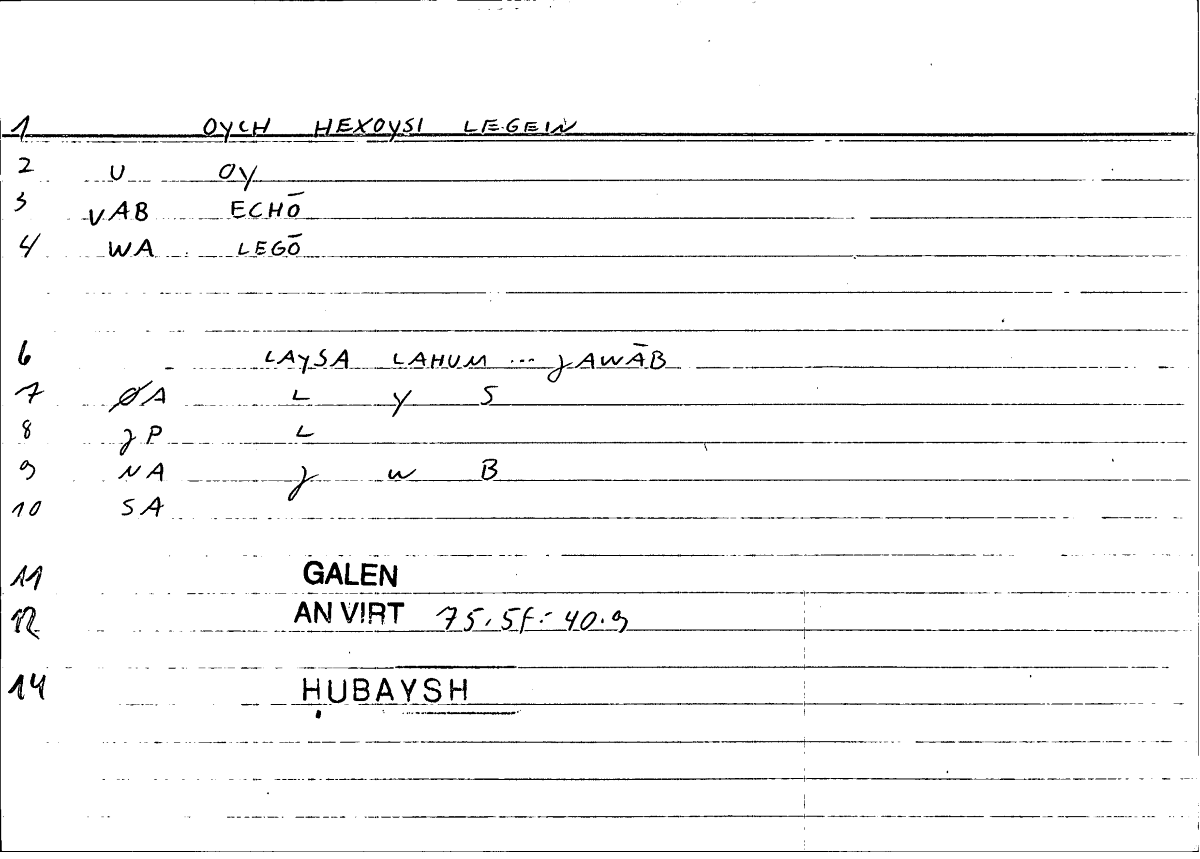 1 OYCH HEXOYSI LEGEIN
2 U OY
3 vAB ECHŌ
4 WA LEGŌ
6 LAYSA LAHUM ... JAWĀB
7 ØA L Y S
8 JP L
9 NA J W B
10 SA
11 GALEN
12 AN VIRT 75.5f.- 40.9
14 ḤUBAYSH